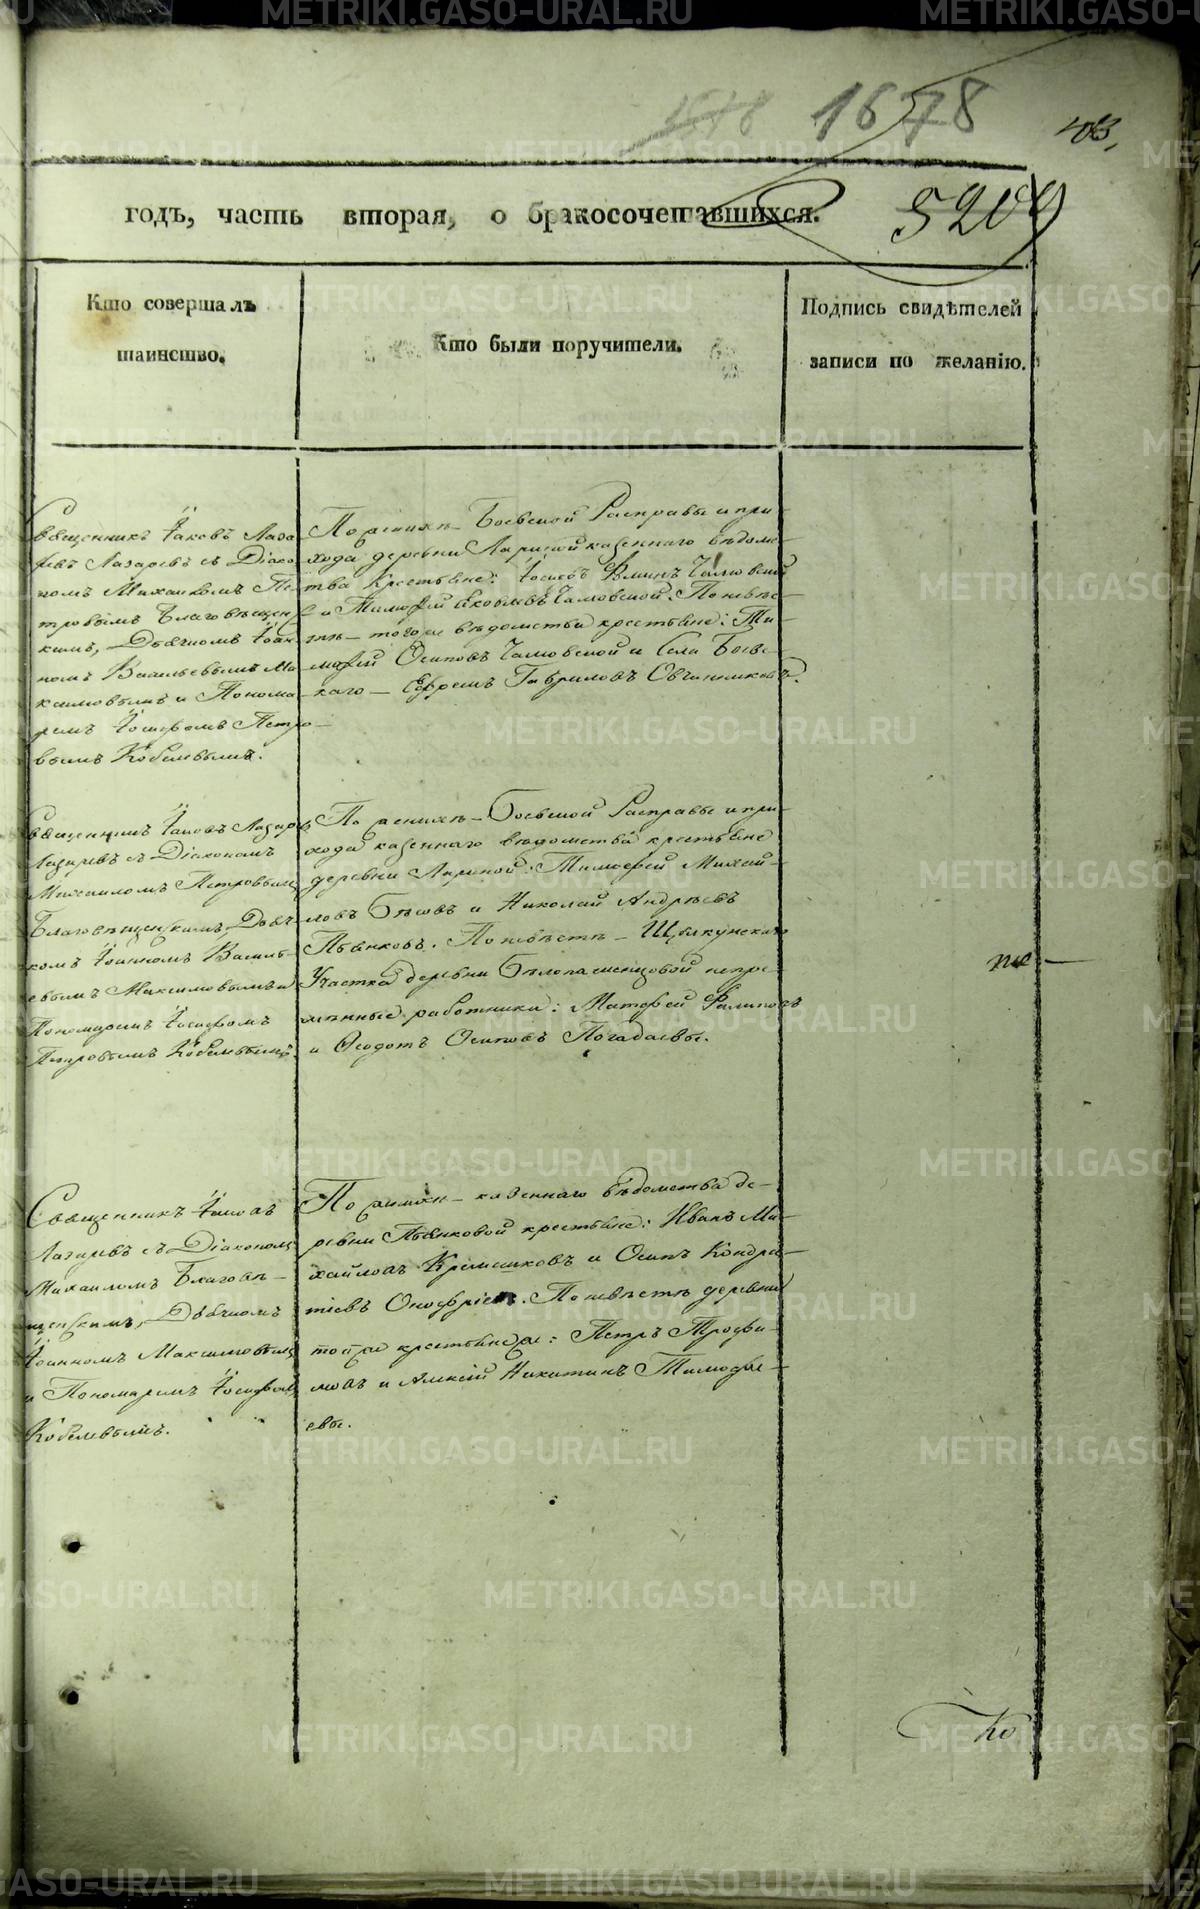 1678 1678 403,
годъ, часть вторая, о бракосочетавшихся. 5209
Кто совершалъ
таинство.
Кто были поручители.
Подпись свидѣтелей
записи по желанію.
Священникъ Іаковъ Лаза
ревъ Лазаревъ съ Діако
номъ Михаиломъ Пе
тровымъ Благовѣщенс
кимъ, Дьячкомъ Іоан
номъ Васильевымъ Ма
ксимовымъ и Понома
ремъ Іосифомъ Петро
вымъ Кобелевымъ.
По женихѣ – Боевской Расправы и при
хода деревни Лариной казеннаго вѣдомс
тва крестьяне: Іосифъ
и Тимофей Яковлевъ Чамовской. По невѣс
тѣ – того же вѣдомства крестьяне: Ти
мофей Осиповъ Чамовской и Села Боевс
каго – Ефремъ Гавриловъ Овчинниковъ.
Священникъ Іаковъ Лазаревъ
Лазаревъ съ Діакономъ
Михаиломъ Петровымъ
Благовѣщенскимъ, Дьяч
комъ Іоанномъ Василь
евымъ Максимовымъ и
Пономаремъ Іосифомъ
Петровымъ Кобелевымъ.
По женихѣ – Боевской Расправы и при
хода казеннаго вѣдомства крестьяне
деревни Лариной: Тимофей Михай
ловъ Бѣсовъ и Николай Андрѣевъ
Пьянковъ. По невѣстѣ – Щелкунскаго
Участка деревни Бѣлопашенцовой непре
мѣнные работники: Матфей Филиповъ
и Ѳеодотъ Осиповъ Погадаевы.
Священникъ Іаковъ
Лазаревъ съ Діакономъ
Михаиломъ Благовѣ
щенскимъ, Дьячкомъ
Іоанномъ Максимовымъ
и Пономаремъ Іосифомъ
Кобелевымъ.
По женихѣ – казеннаго вѣдомства де
ревни Пьянковой крестьяне: Иванъ Ми
хайловъ Кремешковъ и Осипъ Кондра
тіевъ Онофріевъ. По невѣстѣ деревни
той же крестьяне же: Петръ Трофи
мовъ и Алексій Никитинъ Тимофе
евы.
Ко
METRIKI.GASO-URAL.RU